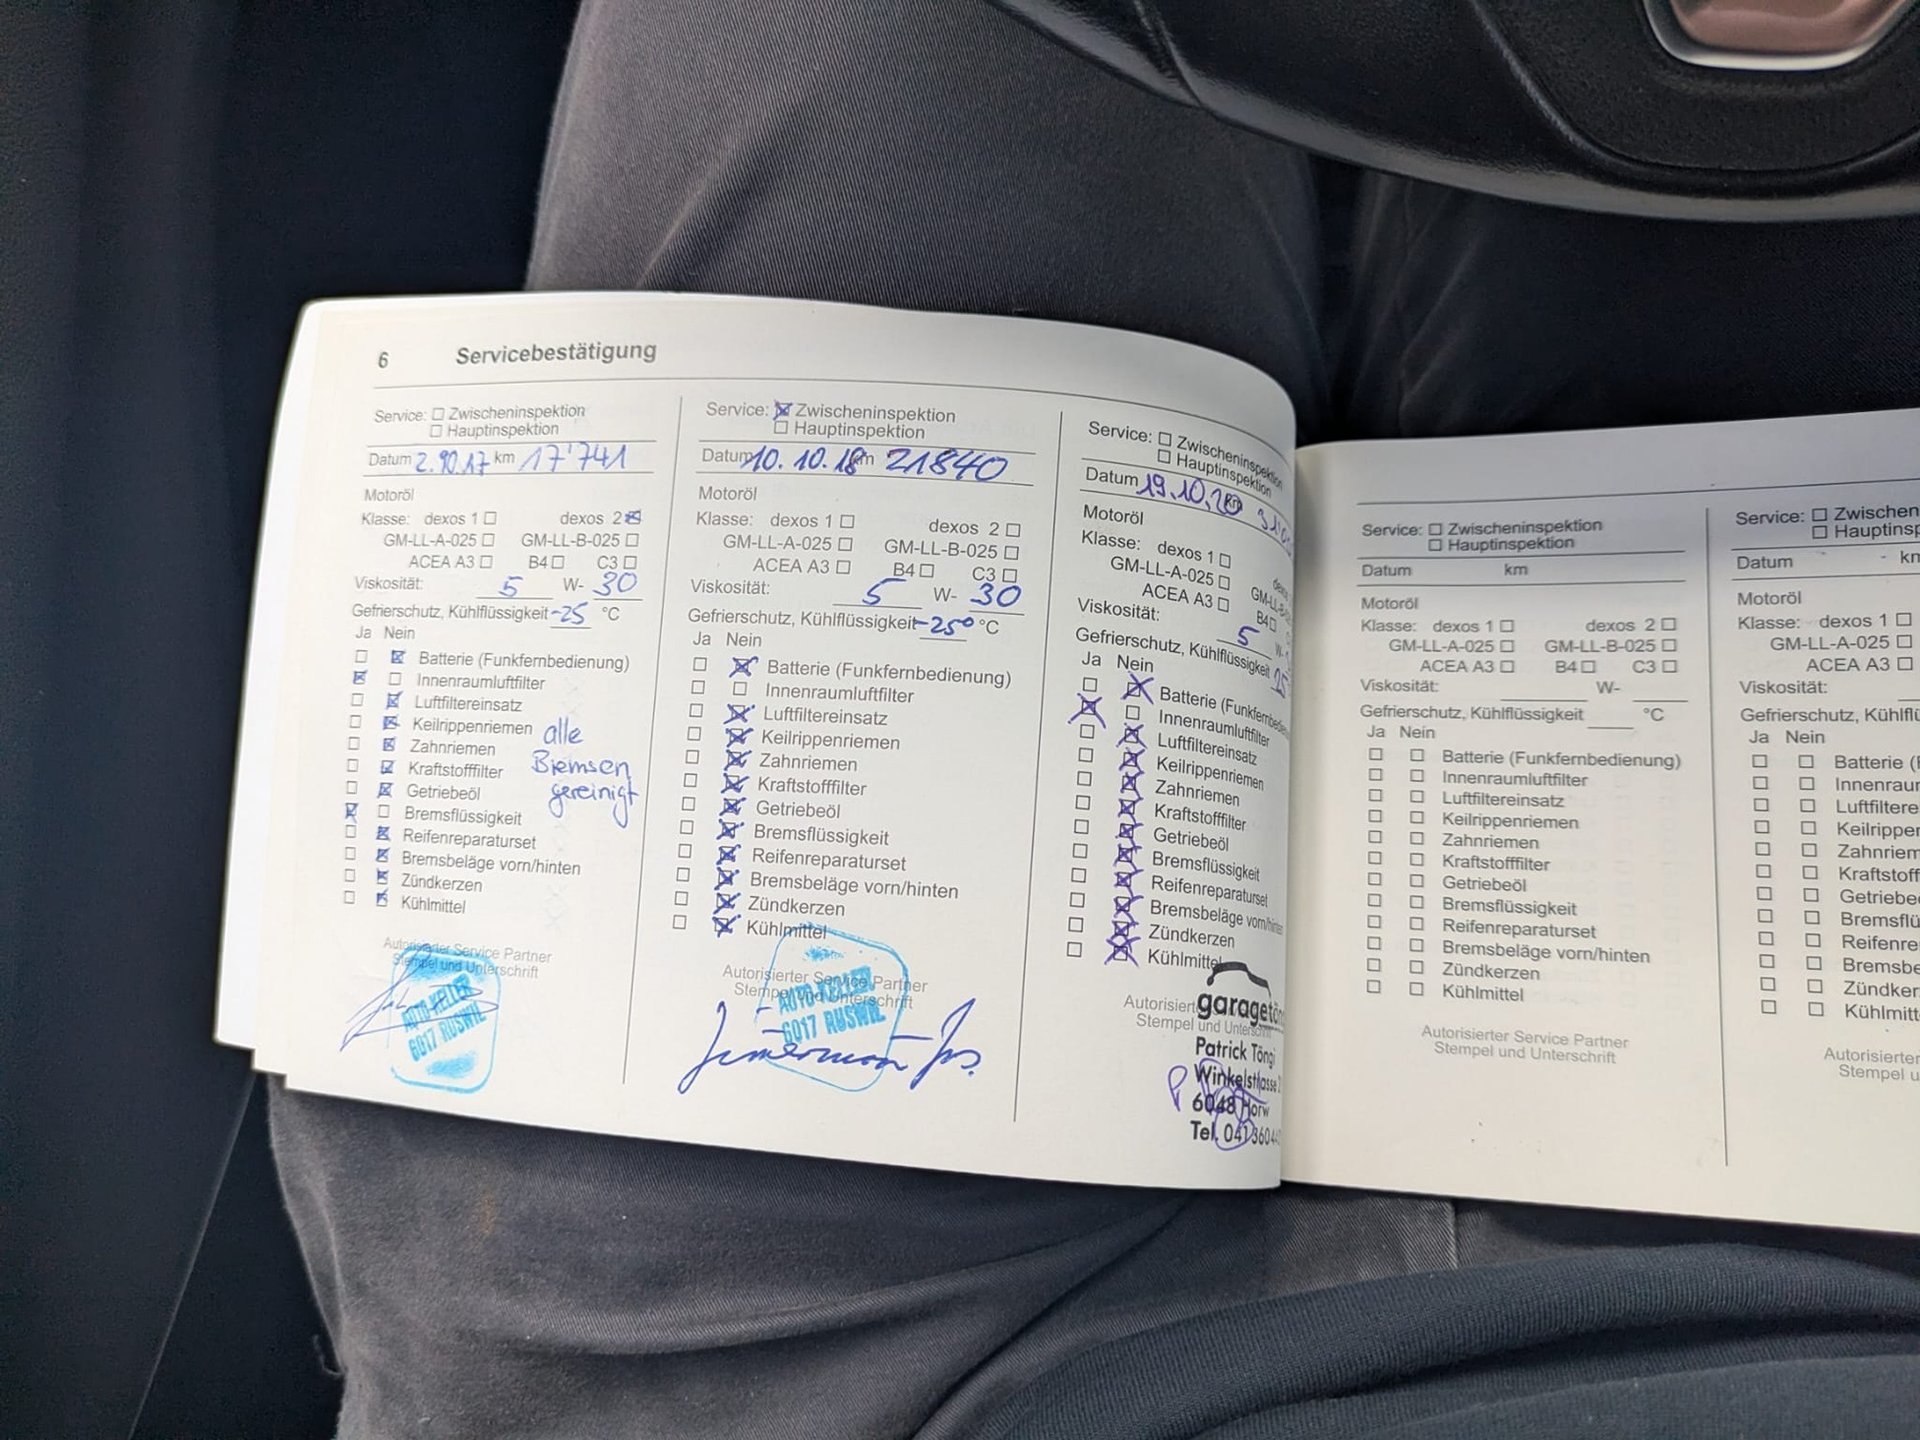 6 Servicebestätigung
Service: Zwischeninspektion
Hauptinspektion
Datum 2.10.17 km 17'741
Motoröl
Klasse: dexos 1 dexos 2
GM-LL-A-025 GM-LL-B-025
ACEA A3 B4 C3
Viskosität: 5 W- 30
Gefrierschutz, Kühlflüssigkeit -25 °C
Ja Nein
Batterie (Funkfernbedienung)
Innenraumluftfilter
Luftfiltereinsatz
Keilrippenriemen
Zahnriemen
Kraftstofffilter
Getriebeöl
Bremsflüssigkeit
Reifenreparaturset
Bremsbeläge vorn/hinten
Zündkerzen
Kühlmittel
alle
Bremsen
gereinigt
Autorisierter Service Partner
Stempel und Unterschrift
AUTO-KELLER
6017 RUSWIL
Service: Zwischeninspektion
Hauptinspektion
Datum 10.10.18 km 21840
Motoröl
Klasse: dexos 1 dexos 2
GM-LL-A-025 GM-LL-B-025
ACEA A3 B4 C3
Viskosität: 5 W- 30
Gefrierschutz, Kühlflüssigkeit -25° °C
Ja Nein
Batterie (Funkfernbedienung)
Innenraumluftfilter
Luftfiltereinsatz
Keilrippenriemen
Zahnriemen
Kraftstofffilter
Getriebeöl
Bremsflüssigkeit
Reifenreparaturset
Bremsbeläge vorn/hinten
Zündkerzen
Kühlmittel
Autorisierter Service Partner
Stempel und Unterschrift
AUTO-KELLER
6017 RUSWIL
Service: Zwischeninspektion
Hauptinspektion
Datum 19.10.20 km
Motoröl
Klasse: dexos 1
GM-LL-A-025
ACEA A3 B4
Viskosität: 5 W-
Gefrierschutz, Kühlflüssigkeit 25
Ja Nein
Batterie (Funkfernbedie
Innenraumluftfilter
Luftfiltereinsatz
Keilrippenriemen
Zahnriemen
Kraftstofffilter
Getriebeöl
Bremsflüssigkeit
Reifenreparaturset
Bremsbeläge vorn/hinten
Zündkerzen
Kühlmittel
Autorisiert
Stempel und Unterschrift
garagetön
Patrick Töngi
Winkelstrasse
6048 Horw
Tel. 041 360 4
Service: Zwischeninspektion
Hauptinspektion
Datum km
Motoröl
Klasse: dexos 1 dexos 2
GM-LL-A-025 GM-LL-B-025
ACEA A3 B4 C3
Viskosität: W-
Gefrierschutz, Kühlflüssigkeit °C
Ja Nein
Batterie (Funkfernbedienung)
Innenraumluftfilter
Luftfiltereinsatz
Keilrippenriemen
Zahnriemen
Kraftstofffilter
Getriebeöl
Bremsflüssigkeit
Reifenreparaturset
Bremsbeläge vorn/hinten
Zündkerzen
Kühlmittel
Autorisierter Service Partner
Stempel und Unterschrift
Service: Zwischen
Hauptinsp
Datum km
Motoröl
Klasse: dexos 1
GM-LL-A-025
ACEA A3
Viskosität:
Gefrierschutz, Kühlflü
Ja Nein
Batterie (F
Innenraur
Luftfiltere
Keilripper
Zahnriem
Kraftstoff
Getriebe
Bremsflü
Reifenre
Bremsbe
Zündker
Kühlmitt
Autorisierter
Stempel u